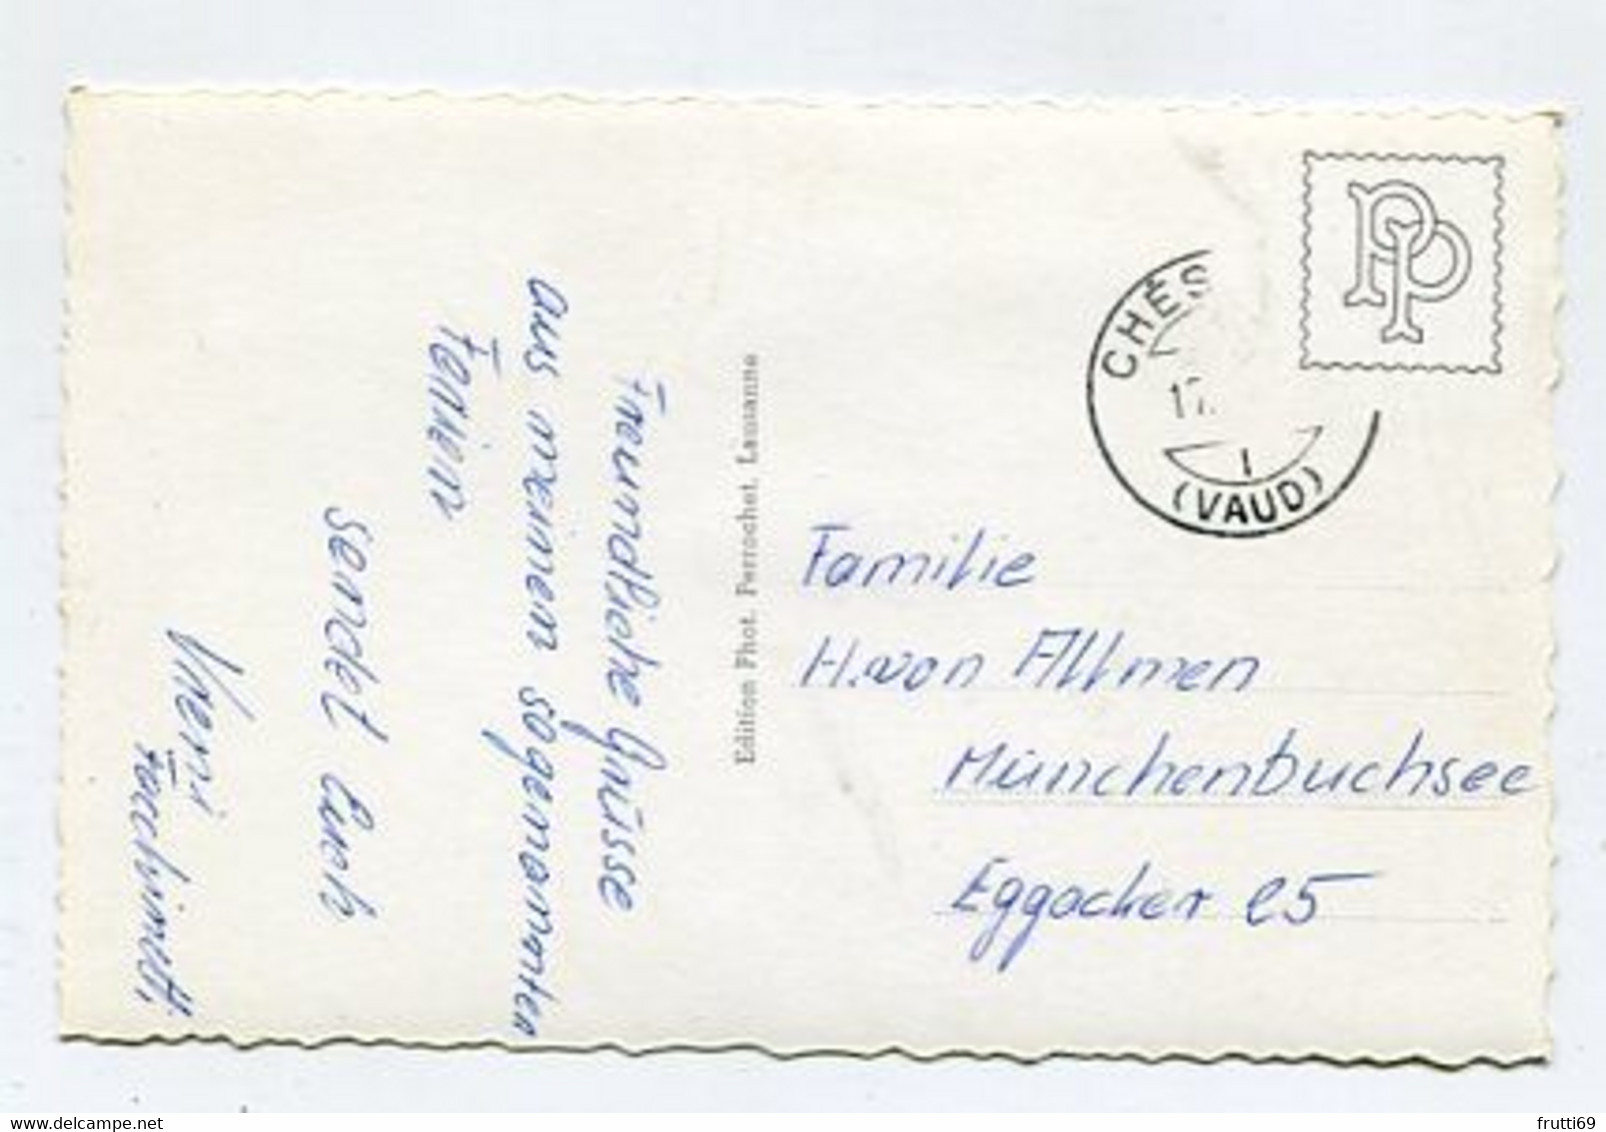 Freundliche Grüsse
aus meinen sogenannten
Ferien
sendet Euch
Vreni
Edition Phot. Perrochet, Lausanne
PP
CHÉS
17.
1
(VAUD)
Familie
H. von Allmen
Münchenbuchsee
Eggacker 25
www.delcampe.net
frutti69